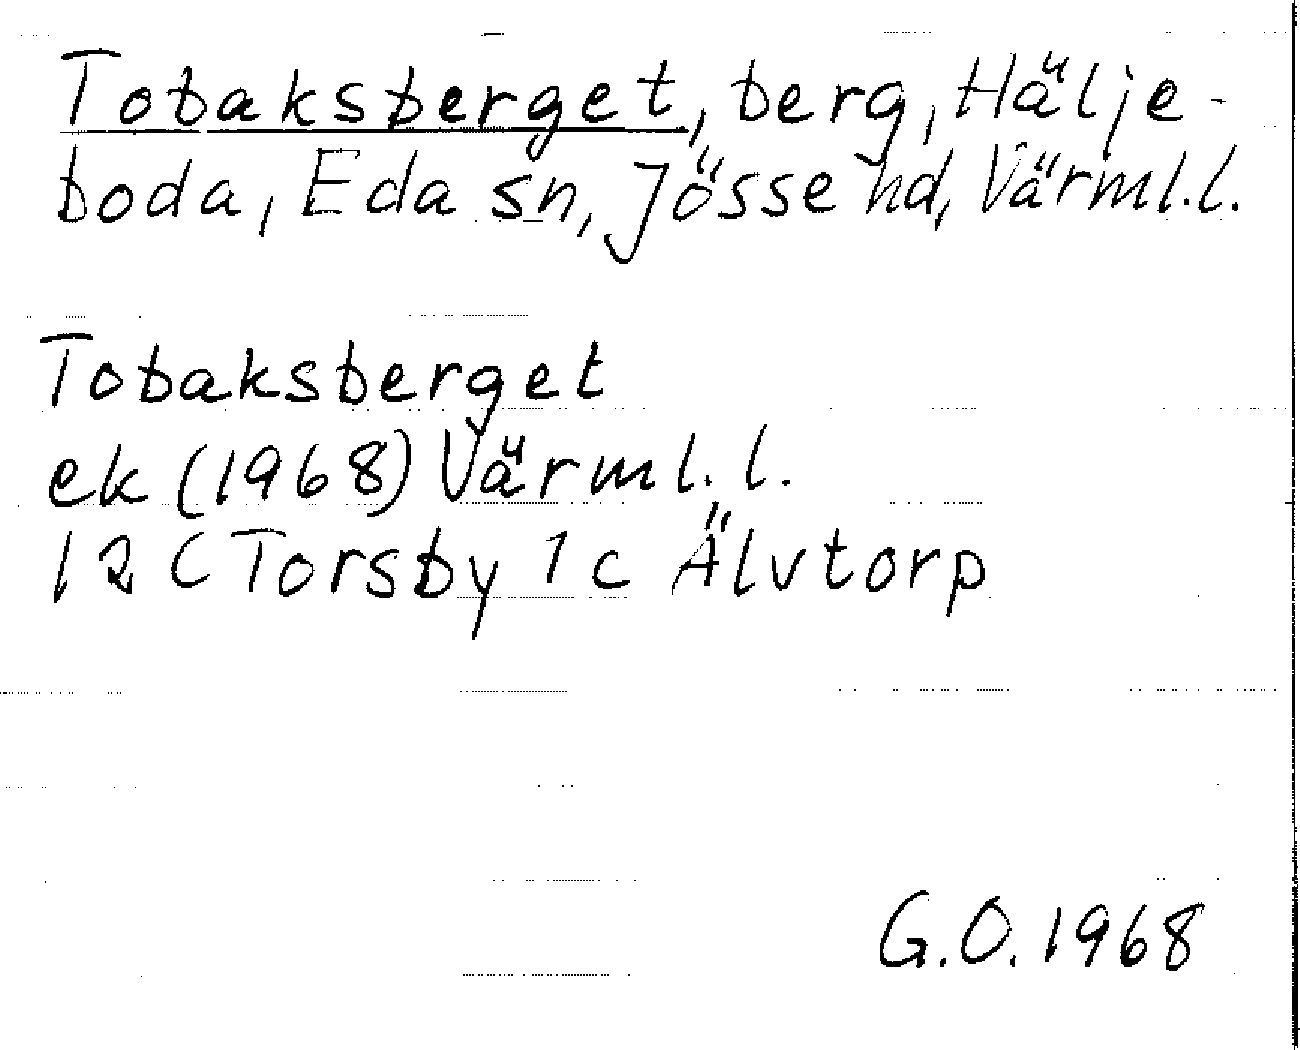 Tobaksberget, berg, Hälje-
boda, Eda sn, Jösse hd, Värml.l.
Tobaksberget
ek (1968) Värml.l.
12 C Torsby 1 c Älvtorp
G.O. 1968